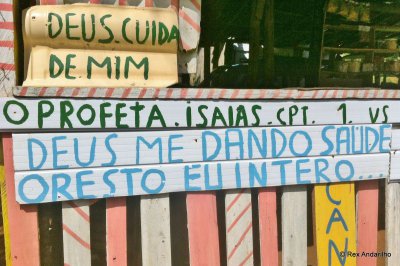 DEUS.CUIDA
DE.MIM
O PROFETA.ISAIAS.CPT. 1. VS
DEUS ME DANDO SAÚDE
O RESTO EU INTERO...
CAN
© Rex Andarilho